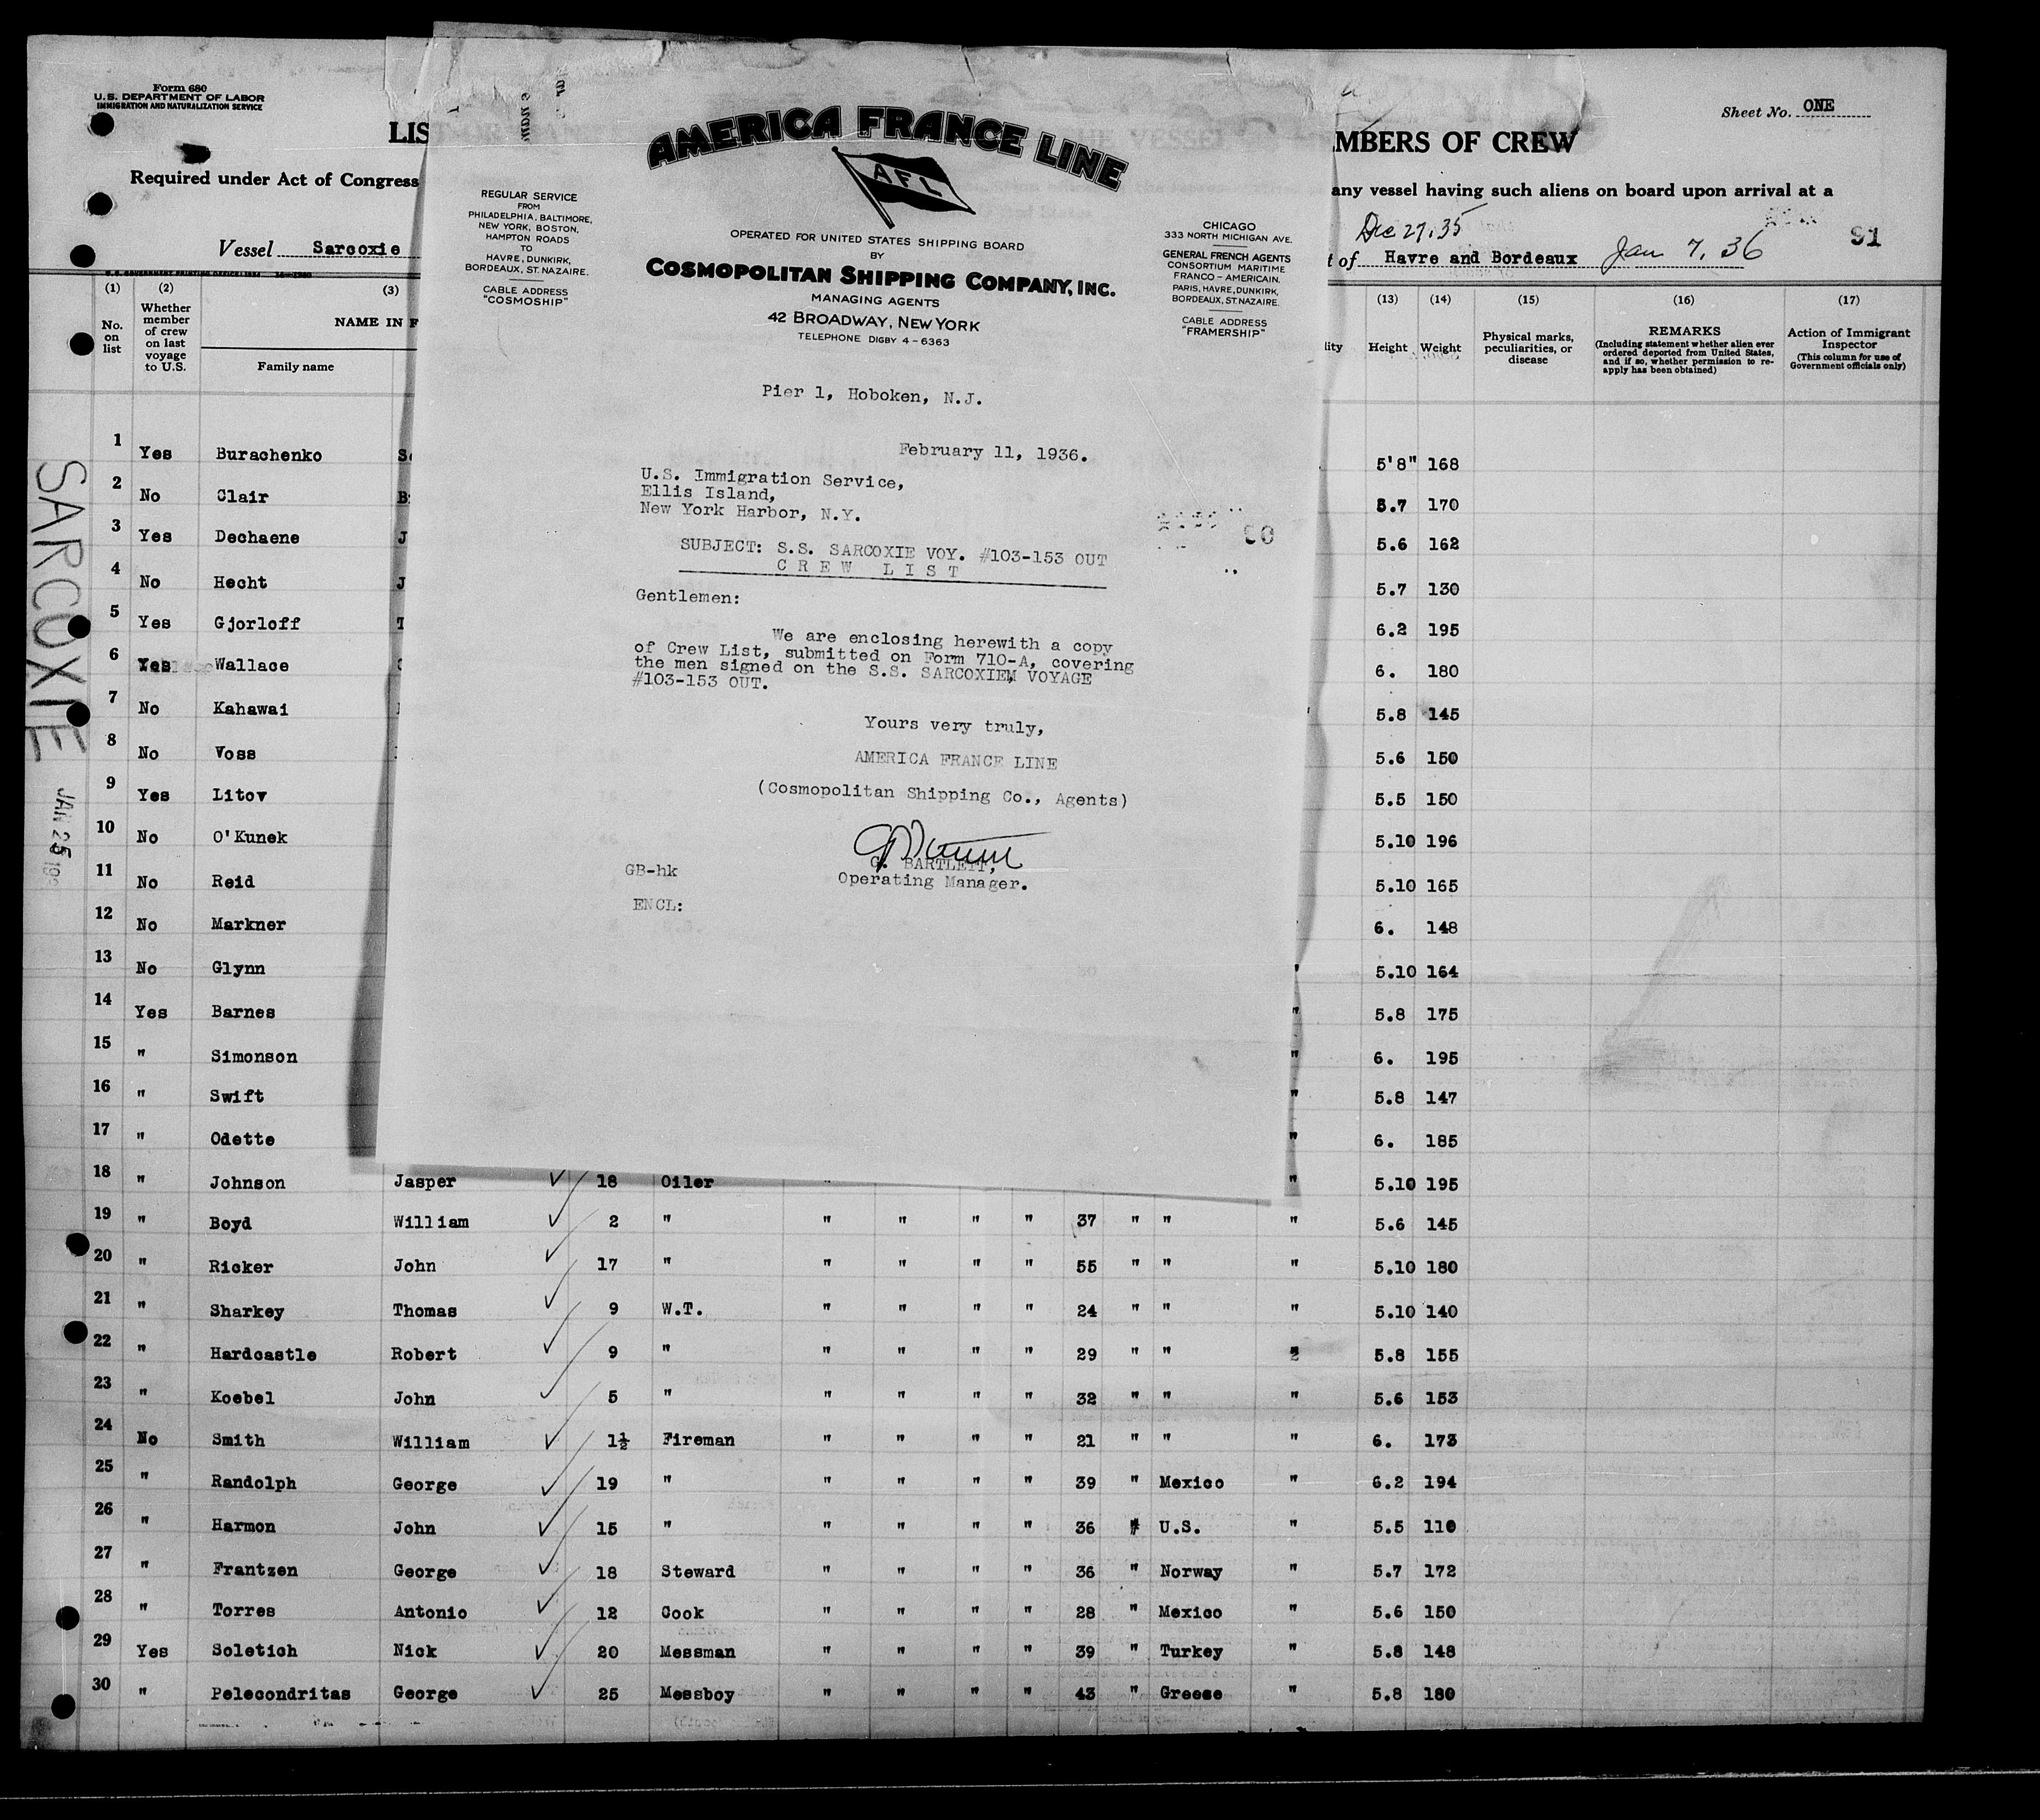 Form 680
U.S. DEPARTMENT OF LABOR
IMMIGRATION AND NATURALIZATION SERVICE
Sheet No. ONE
LIS
MBERS OF CREW
Required under Act of Congress
any vessel having such aliens on board upon arrival at a
Dec 27.35
91
Vessel Sarcoxie
t of Havre and Bordeaux Jan 7, 36
AMERICA FRANCE LINE
AFL
REGULAR SERVICE
FROM
PHILADELPHIA, BALTIMORE,
NEW YORK, BOSTON,
HAMPTON ROADS
TO
HAVRE, DUNKIRK,
BORDEAUX, ST. NAZAIRE.
CABLE ADDRESS
"COSMOSHIP"
OPERATED FOR UNITED STATES SHIPPING BOARD
BY
COSMOPOLITAN SHIPPING COMPANY, INC.
MANAGING AGENTS
42 BROADWAY, NEW YORK
TELEPHONE DIGBY 4-6363
CHICAGO
333 NORTH MICHIGAN AVE.
GENERAL FRENCH AGENTS
CONSORTIUM MARITIME
FRANCO-AMERICAIN.
PARIS, HAVRE, DUNKIRK,
BORDEAUX, ST. NAZAIRE.
CABLE ADDRESS
"FRAMERSHIP"
Pier 1, Hoboken, N.J.
February 11, 1936.
U.S. Immigration Service,
Ellis Island,
New York Harbor, N.Y.
SUBJECT: S.S. SARCOXIE VOY. #103-153 OUT
CREW LIST
Gentlemen:
We are enclosing herewith a copy
of Crew List, submitted on Form 710-A, covering
the men signed on the S.S. SARCOXIE VOYAGE
#103-153 OUT.
Yours very truly,
AMERICA FRANCE LINE
(Cosmopolitan Shipping Co., Agents)
G. BARTLETT,
Operating Manager.
GB-hk
ENCL:
(1) (2) (3) (13) (14) (15) (16) (17)
No. on list
Whether member of crew on last voyage to U.S.
NAME IN F
Family name
lity
Height
Weight
Physical marks, peculiarities, or disease
REMARKS
(Including statement whether alien ever ordered deported from United States, and if so, whether permission to re-apply has been obtained)
Action of Immigrant Inspector
(This column for use of Government officials only)
SARCOXIE
JAN 25
1 Yes Burachenko 5'8" 168
2 No Clair 5.7 170
3 Yes Dechaene J 5.6 162
4 No Hecht J 5.7 130
5 Yes Gjorloff T 6.2 195
6 Yes Wallace 6. 180
7 No Kahawai 5.8 145
8 No Voss 5.6 150
9 Yes Litov 5.5 150
10 No O'Kunek 5.10 196
11 No Reid 5.10 165
12 No Markner 6. 148
13 No Glynn " 5.10 164
14 Yes Barnes " 5.8 175
15 " Simonson " 6. 195
16 " Swift " 5.8 147
17 " Odette " 6. 185
18 " Johnson Jasper 18 Oiler " " 5.10 195
19 " Boyd William 2 " " " " " 37 " " " 5.6 145
20 " Ricker John 17 " " " " " 55 " " " 5.10 180
21 " Sharkey Thomas 9 W.T. " " " " 24 " " " 5.10 140
22 " Hardcastle Robert 9 " " " " " 29 " " " 5.8 155
23 " Koebel John 5 " " " " " 32 " " " 5.6 153
24 No Smith William 1½ Fireman " " " " 21 " " " 6. 173
25 " Randolph George 19 " " " " " 39 " Mexico " 6.2 194
26 " Harmon John 15 " " " " " 36 " U.S. " 5.5 110
27 " Frantzen George 18 Steward " " " " 36 " Norway " 5.7 172
28 " Torres Antonio 12 Cook " " " " 28 " Mexico " 5.6 150
29 Yes Soletich Nick 20 Messman " " " " 39 " Turkey " 5.8 148
30 " Pelecondritas George 25 Messboy " " " " 43 " Greese " 5.8 180